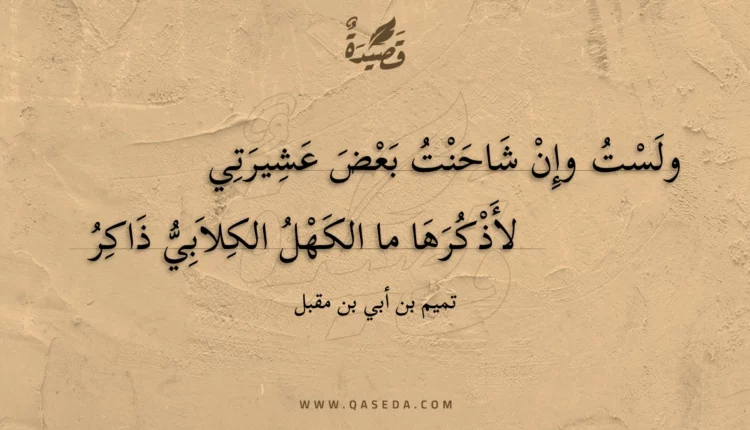 قَصِيدَةٌ
ولَسْتُ وإِنْ شَاحَنْتُ بَعْضَ عَشِيرَتِي
لأَذْكُرَهَا ما الكَهْلُ الكِلاَبِيُّ ذَاكِرُ
تميم بن أبي بن مقبل
WWW.QASEDA.COM